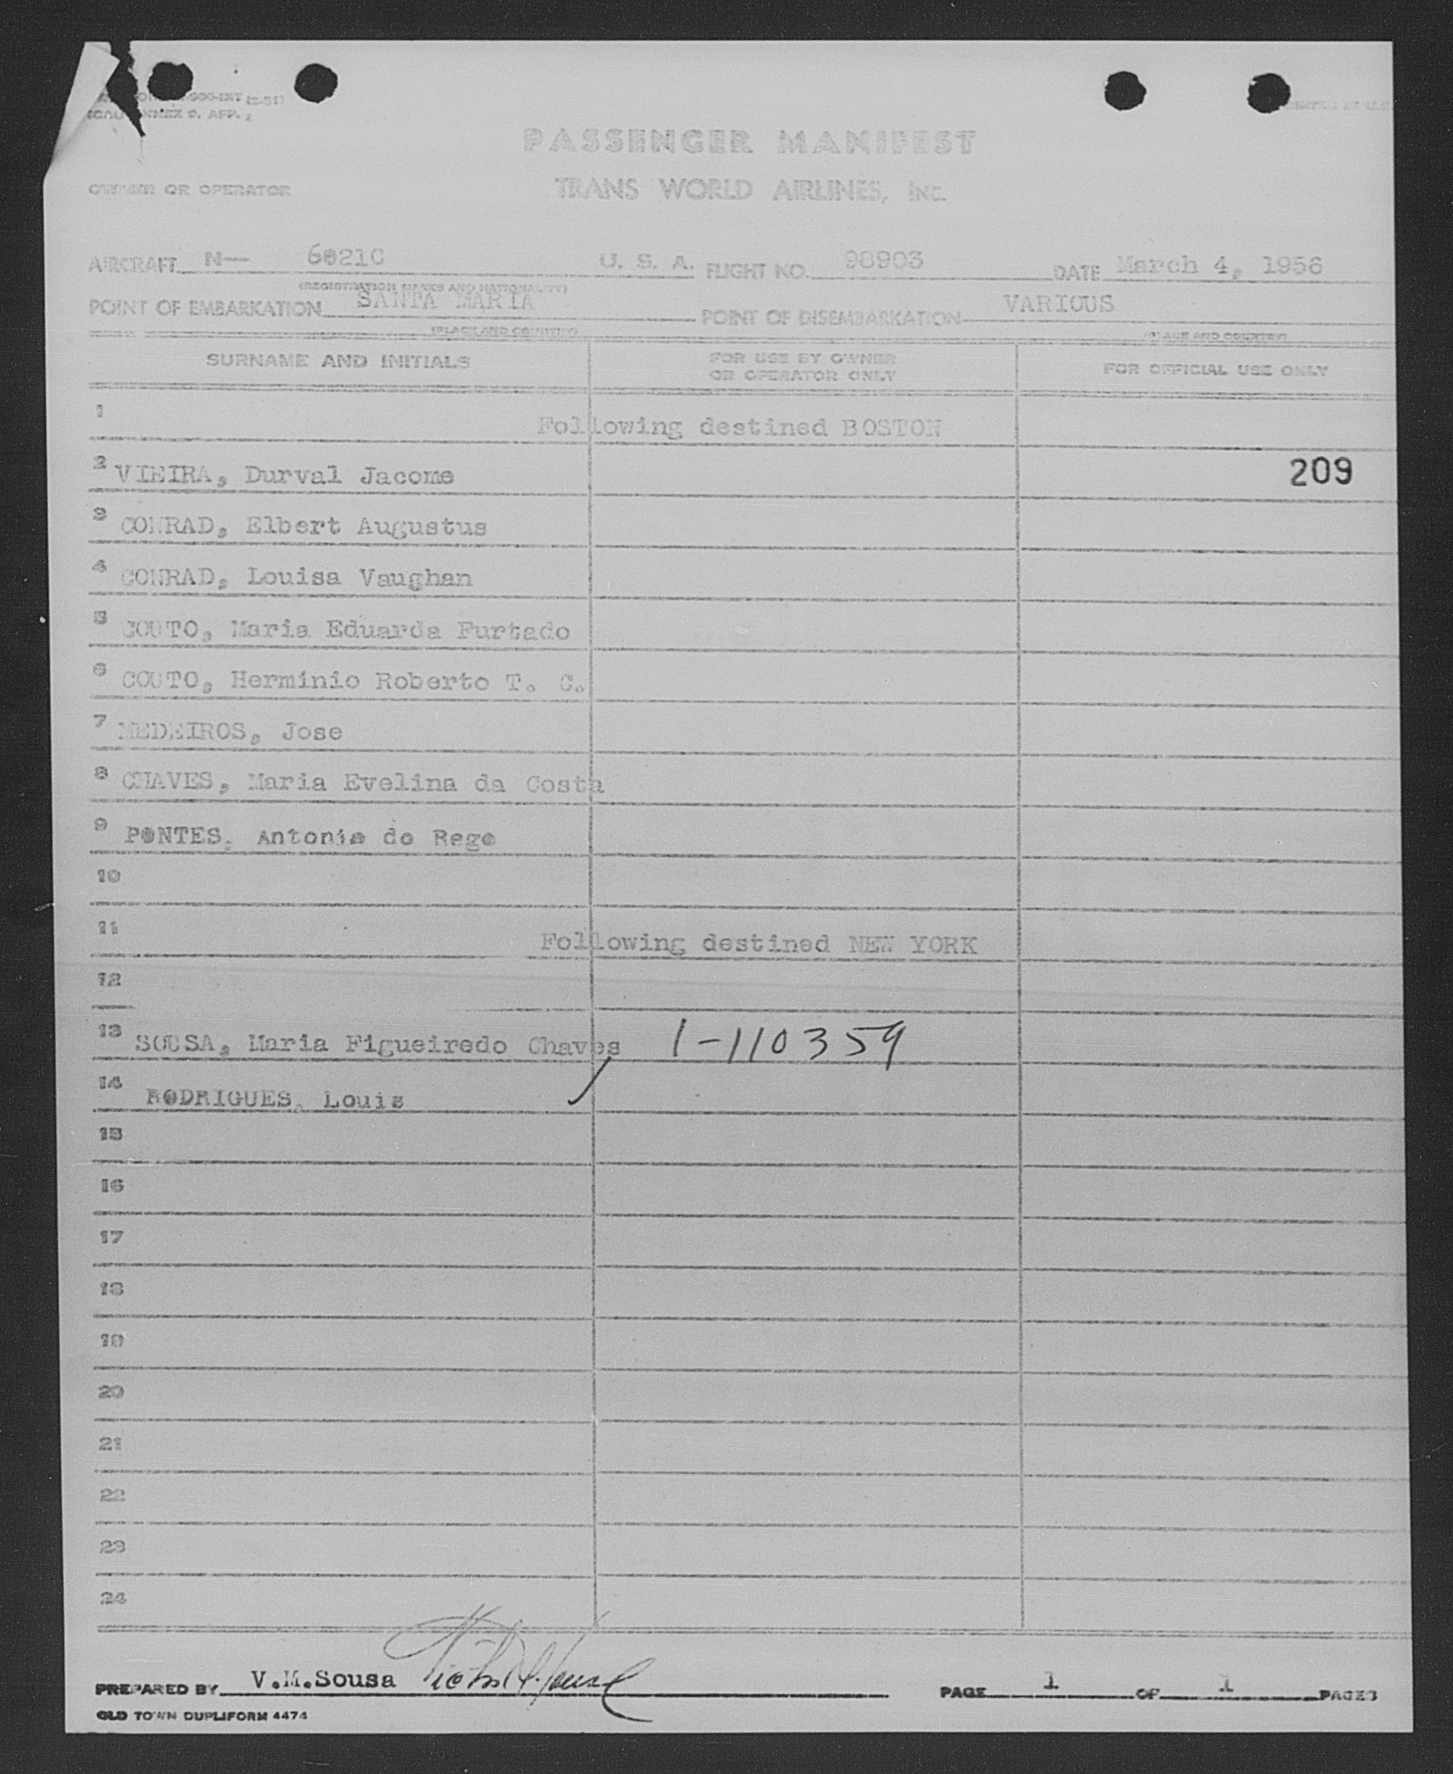 ICAO ANNEX 9, APP. 2
PASSENGER MANIFEST
OWNER OR OPERATOR TRANS WORLD AIRLINES, INC.
AIRCRAFT N— 6021C U. S. A. FLIGHT NO. 98903 DATE March 4, 1956
(REGISTRATION MARKS AND NATIONALITY)
POINT OF EMBARKATION SANTA MARIA POINT OF DISEMBARKATION VARIOUS
(PLACE AND COUNTRY) (PLACE AND COUNTRY)
SURNAME AND INITIALS FOR USE BY OWNER OR OPERATOR ONLY FOR OFFICIAL USE ONLY
1 Following destined BOSTON
2 VIEIRA, Durval Jacome 209
3 CONRAD, Elbert Augustus
4 CONRAD, Louisa Vaughan
5 COUTO, Maria Eduarda Furtado
6 COUTO, Herminio Roberto T. C.
7 MEDEIROS, Jose
8 CHAVES, Maria Evelina da Costa
9 PONTES, Antonio do Rego
10
11 Following destined NEW YORK
12
13 SOUSA, Maria Figueiredo Chaves 1-110359
14 RODRIGUES, Louis
15
16
17
18
19
20
21
22
23
24
PREPARED BY V.M.Sousa PAGE 1 OF 1 PAGES
OLD TOWN DUPLIFORM 4474